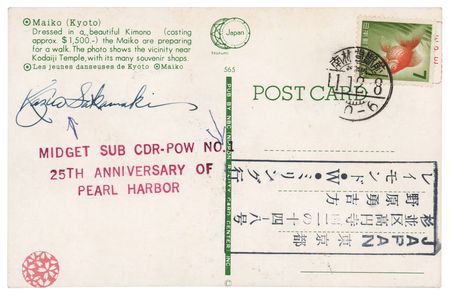 Maiko (Kyoto)
Dressed in a beautiful Kimono (costing
approx. $1,500.-) the Maiko are preparing
for a walk. The photo shows the vicinity near
Kodaiji Temple, with its many souvenir shops.
Les jeunes danseuses de Kyoto Maiko
Japan
565
POST CARD
7
12.8
Kazuo Sakamaki
MIDGET SUB CDR-POW NO.1
25TH ANNIVERSARY OF
PEARL HARBOR
PUB BY NBC
CARD CENTER INC
JAPAN 東京都
杉並区高円寺二の十四-八号
野原勇吉方
レイモンド・W・ミリング行